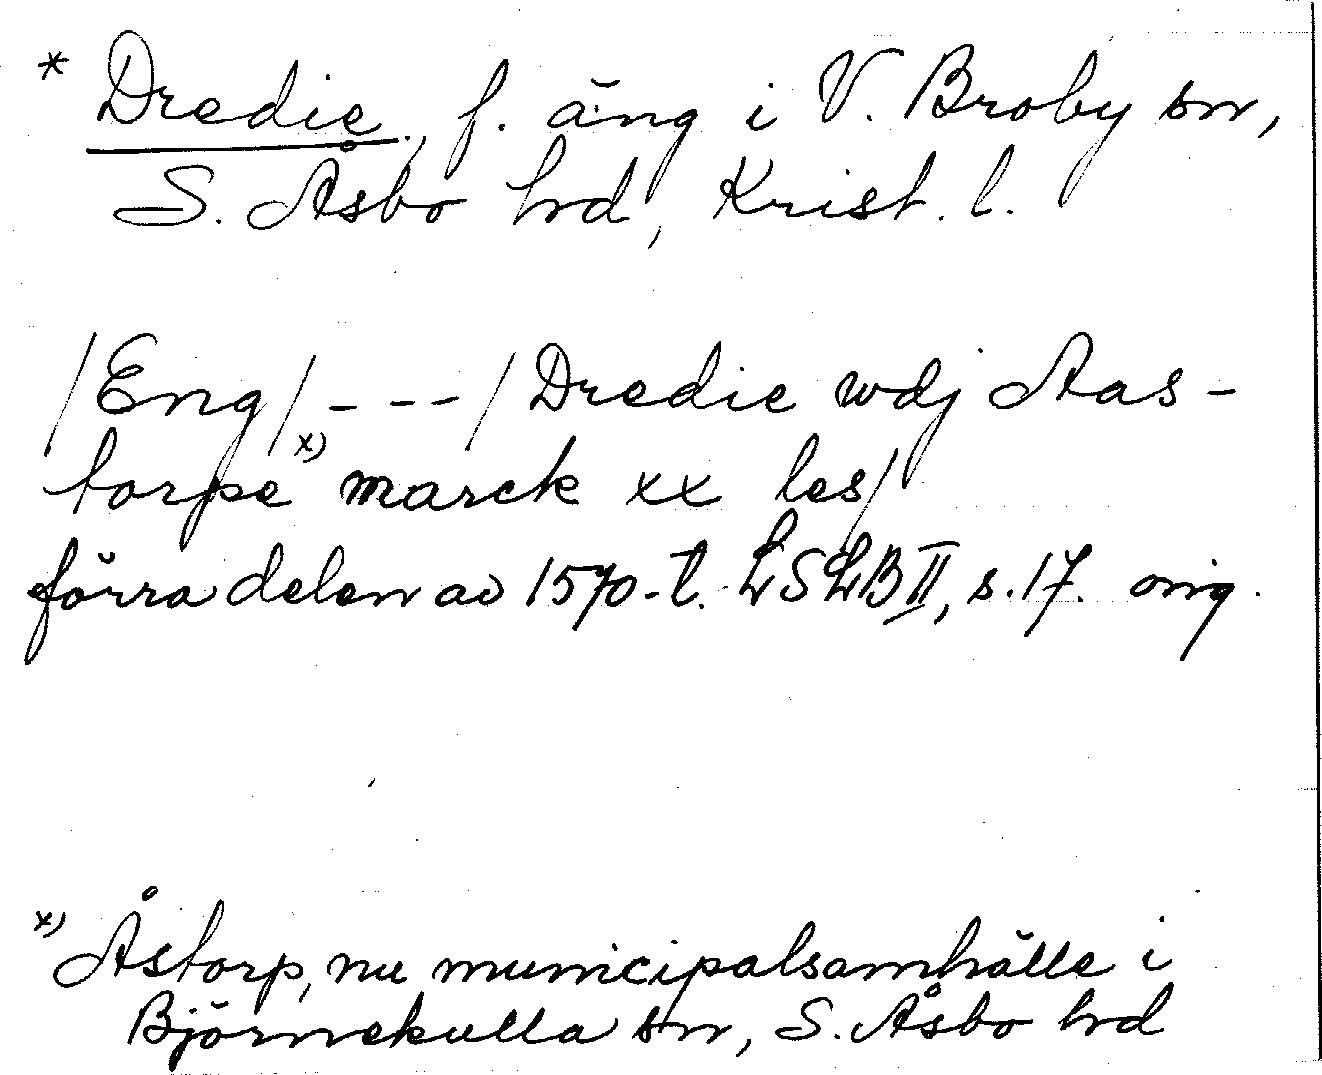 * Dredie, f. äng i V. Broby sn,
S. Åsbo hrd, Krist. l.
/Eng/ - - - / Dredie wdj Aas-
torpe x) marck xx les/
förra delen av 1570-t. LSLB II, s. 17. orig.
x) Åstorp, nu municipalsamhälle i
Björnekulla sn, S. Åsbo hrd